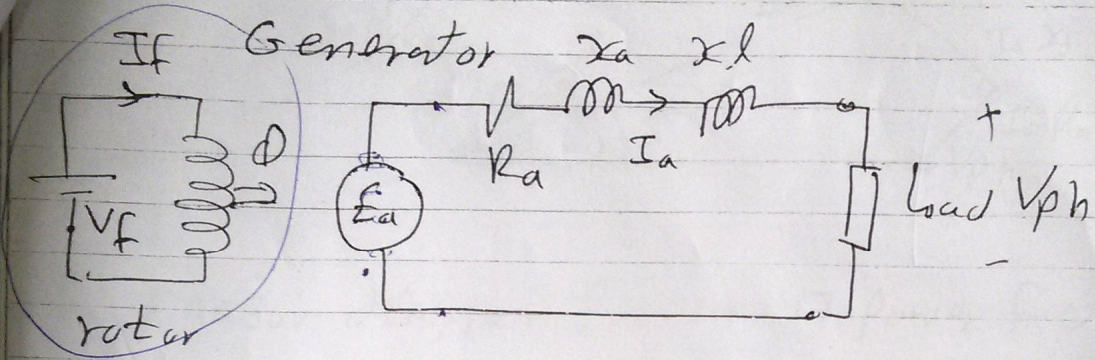 If Generator xa xl
+
Φ Ra Ia
Ea Load Vph
Vf
-
rotor